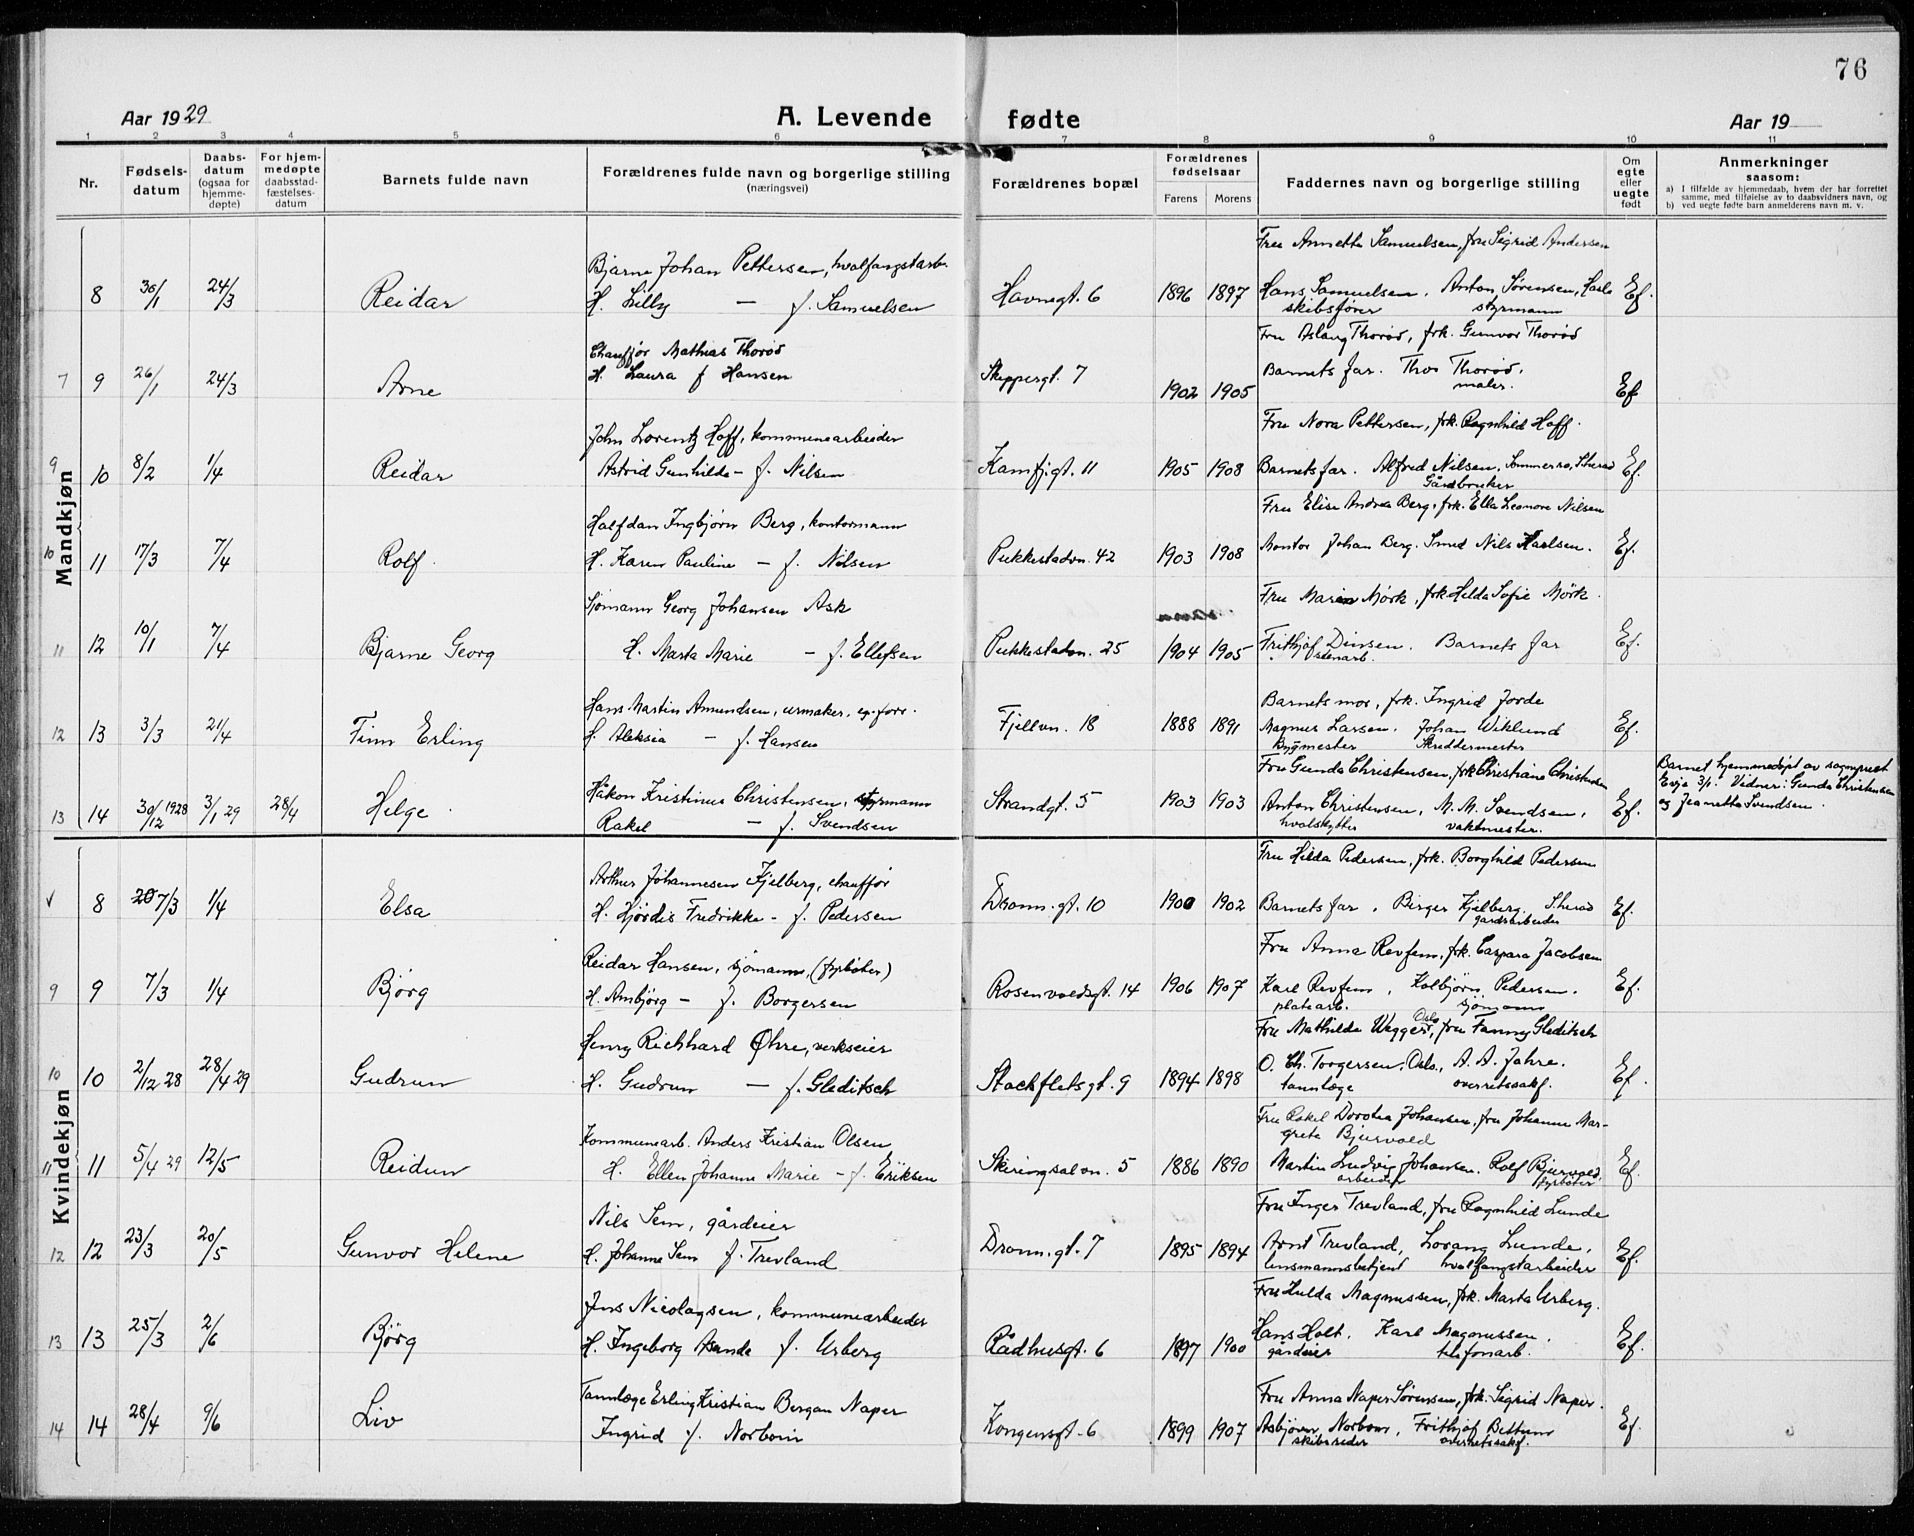 76
Aar 1929 A. Levende fødte Aar 19
1 2 3 4 5 6 7 8 9 10 11
Nr.
Fødsels-
datum
Daabs-
datum
(ogsaa for
hjemme-
døpte)
For hjem-
medøpte
daabsstad-
fæstelses-
datum
Barnets fulde navn
Forældrenes fulde navn og borgerlige stilling
(næringsvei)
Forældrenes bopæl
Forældrenes
fødselsaar
Farens Morens
Faddernes navn og borgerlige stilling
Om
egte
eller
uegte
født
Anmerkninger
saasom:
a) I tilfælde av hjemmedaab, hvem der har forrettet
samme, med tilføielse av to daabsvidners navn, og
b) ved uegte fødte barn anmelderens navn m. v.
Mandkjøn
Fru Annette Samuelsen, fru Sigrid Andersen
Bjarne Johan Pettersen, hvalfangstarb.
8 30/1 24/3 Reidar H. Lilly — f. Samuelsen Havnegt. 6 1896 1897 Hans Samuelsen, Anton Sørensen, Ef.
skibsfører styrmann
Fru Aslaug Thorød, frk. Gunvor Thorød
Chauffør Mathias Thorød
7 9 26/1 24/3 Arne H. Laura f Hansen Skippergt. 7 1902 1905 Barnets far. Thorød, Ef
maler.
Fru Nora Pettersen, frk. Ragnhild Hoff.
John Lorentz Hoff, kommunearbeider
9 10 8/2 1/4 Reidar Astrid Gunhilde — f. Nilsen Kamfjgt. 11 1905 1908 Barnets far. Alfred Nilsen, Sommerro, Ef.
Gårdbruker
Fru Elise Andrea Berg, frk. Ella Leonore Nilsen
Halfdan Ingbjørn Berg, kontormann
10 11 17/3 7/4 Rolf. H. Karen Pauline — f. Nilsen Pukkestadvn. 42 1903 1908 Montør Johan Berg. Smed Nils Karlsen. Ef.
Fru Maren Mørk, frk Hilda Sofie Mørk.
Sjømann Georg Johansen Ask
11 12 10/1 7/4 Bjarne Georg H. Marta Marie — f. Ellefsen Pukkestadvn. 25 1904 1905 Frithjof Dinsen. Barnets far Ef.
stenarb.
Barnets mor, frk. Ingrid Jorde
Hans Martin Amundsen, urmaker, eg. forr.
12 13 3/3 21/4 Finn Erling H. Aleksia — f. Hansen Fjellvn. 18 1888 1891 Magnus Larsen. Johan Wiklund Ef.
Bygmester Skreddermester
Fru Gunda Christensen, frk Christiane Christensen
Håkon Kristinus Christensen, styrmann
13 14 30/12 1928 3/1 29 28/4 Helge. Rakel — f. Svendsen Strandgt. 5 1903 1903 Anton Christensen, M. M. Svendsen, Ef.
hvalskytter vaktmester.
Barnet hjemmedøpt av sogneprest
Evje 3/1. Vidner: Gunda Christensen
og Jeanette Svendsen.
Kvindekjøn
Fru Hilda Pedersen, frk. Borghild Pedersen
Arthur Johannesen Kjelberg, chauffør
8 7/3 1/4 Elsa H. Hjørdis Fredrikke — f. Pedersen Dronn. gt. 10 1900 1902 Barnets far, Birger Kjelberg, Ef.
gardsarbeider
Fru Anna Revfem, frk. Caspara Jacobsen
Reidar Hansen, sjømann, (fyrbøter)
9 9 7/3 1/4 Bjørg H. Ambjørg — f. Borgersen Rosenvoldsgt. 14 1906 1907 Karl Revfem, Kolbjørn Pedersen. Ef.
platearb. sjømann
Fru Mathilde Wegger, Oslo, fru Fanny Gleditsch
Henry Richhard Øhre, verkseier
10 10 2/12 28 28/4 29 Gudrun H. Gudrun — f. Gleditsch Stockfletsgt. 9 1894 1898 O. Ch. Torgersen, Oslo, A. A. Jahre. Ef.
tannlæge overretssakf.
Fru Rakel Dorthea Johansen, fru Johanne Mar-
grete Bjurvold
Kommunearb. Anders Kristian Olsen
11 11 5/4 29 12/5 Reidun H. Ellen Johanne Marie — f. Eriksen Skiringsalvn. 5 1886 1890 Martin Ludvig Johansen. Rolf Bjurvold, Ef.
arbeider fyrbøter
Fru Inger Trevland, fru Ragnhild Lunde
Nils Sem, gårdeier
12 12 23/3 20/5 Gunvor Helene H. Johanne Sem f. Trevland Dronn. gt. 7 1895 1894 Arnt Trevland, Lorang Lunde, Ef.
lensmannsbetjent hvalfangstarbeider
Fru Hulda Magnussen, frk. Marta Urberg.
Jens Nicolaysen, kommunearbeider
13 13 25/3 2/6 Bjørg H. Ingeborg Asanda f. Urberg Rådhusgt. 6 1897 1900 Hans Holt. Karl Magnussen. Ef.
gårdeier telefonarb.
Fru Anna Naper Sørensen, frk. Sigrid Naper.
Tannlæge Erling Kristian Bergan Naper
14 14 28/4 9/6 Liv Ingrid f. Norbom Kongensgt. 6 1899 1907 Asbjørn Norbom, Frithjof Bettum Ef.
skibsreder overretssakf.